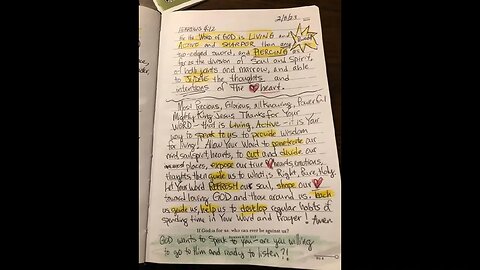 HEBREWS 4:12
2/8/23
For the WORD of GOD IS LIVING and
ACTIVE and SHARPER than any
two-edged sword, and PIERCING as
far as the division of Soul and Spirit,
of both joints and marrow, and able
to JUDGE the thoughts and
intentions of The heart.
Most Precious, Glorious, all Knowing, Powerful
Mighty King Jesus Thanks for Your
WORD - that is Living, Active - it is Your
way to speak to us to provide wisdom
for living! Allow Your Word to penetrate our
soulspirit hearts, to cut and divide our
places, expose our true hearts, emotions,
thoughts then guide us to what is Right, Pure, Holy.
Let Your Word REFRESH our soul, shape our
toward loving GOD and Those around us. Teach
us guide us, help us to develop regular habits of
spending time in Your Word and Prayer! Amen
If God is for us, who can ever be against us?
GOD wants to Speak to you - are you willing
to go to Him and Ready to listen?!